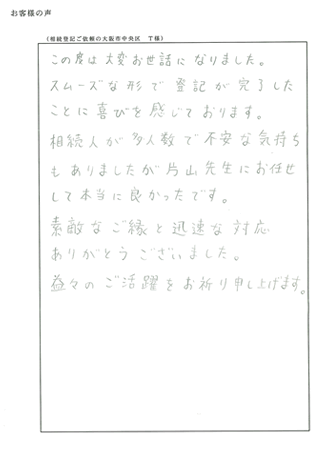 お客様の声
（相続登記ご依頼の大阪市中央区　T様）
この度は大変お世話になりました。
スムーズな形で登記が完了した
ことに喜びを感じております。
相続人が多人数で不安な気持ち
もありましたが片山先生にお任せ
して本当に良かったです。
素敵なご縁と迅速な対応
ありがとうございました。
益々のご活躍をお祈り申し上げます。